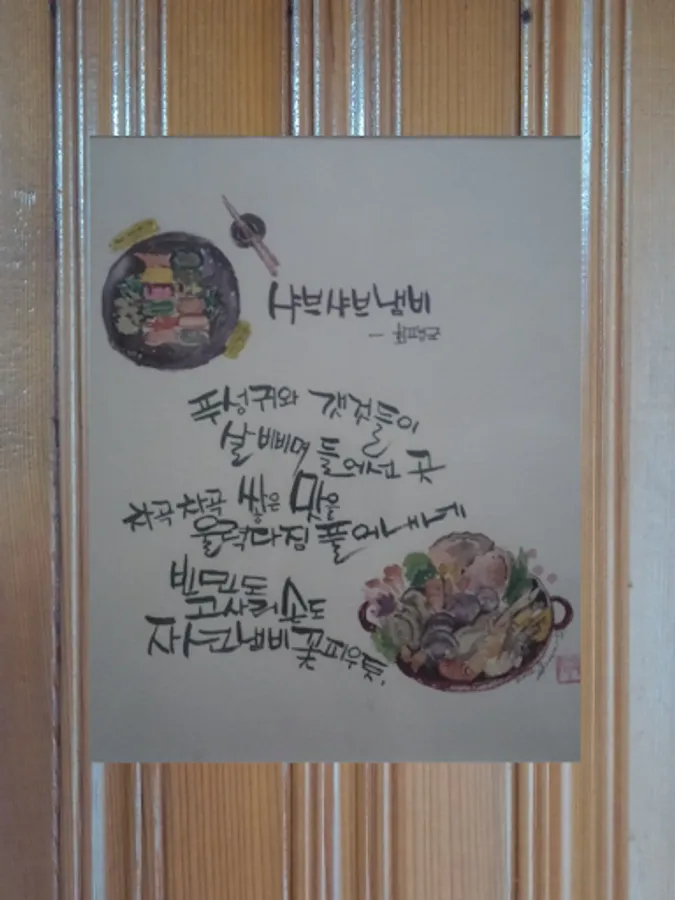 샤브샤브냄비
푸성귀와 갯것들이
살 비비며 들어선 곳
차곡차곡 쌓은 맛을
울력다짐 풀어내네
빈민도
고사리손도
자선냄비 꽃피우듯.